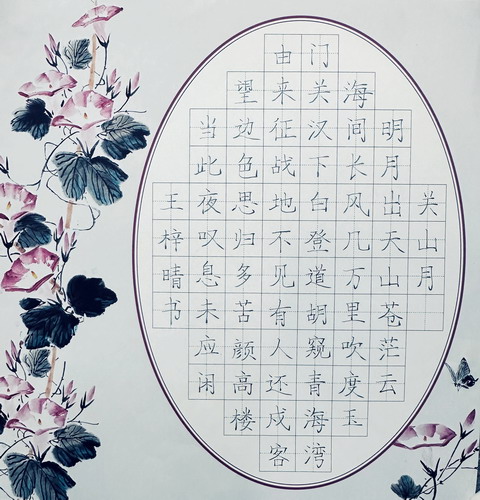 关山月
明月出天山苍茫云
海间长风几万里吹度玉
门关汉下白登道胡窥青海湾
由来征战地不见有人还戍客
望边色思归多苦颜高楼
当此夜叹息未应闲
王梓晴书